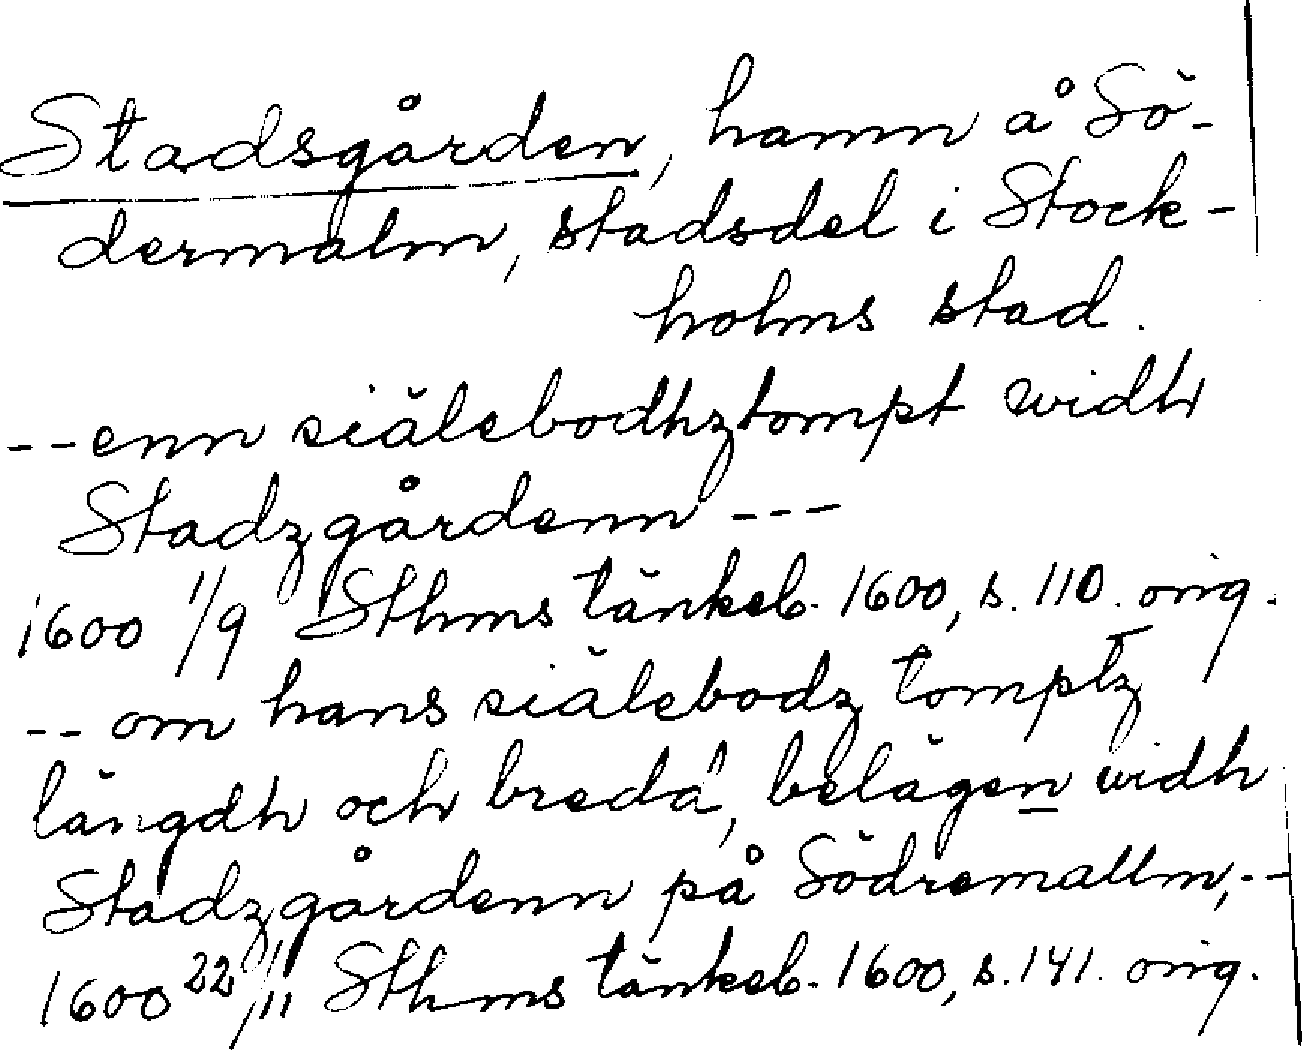 Stadsgården, hamn å Sö-
dermalm, stadsdel i Stock-
holms stad.
--enn siälebodhztompt widh
Stadzgårdenn ---
1600 1/9 Sthms tänkeb. 1600, s. 110. orig.
-- om hans siälebodz tomptz
längdh och bredd, belägen widh
Stadzgårdenn på Södremallm,--
1600 22/11 Sthms tänkeb. 1600, s. 141. orig.